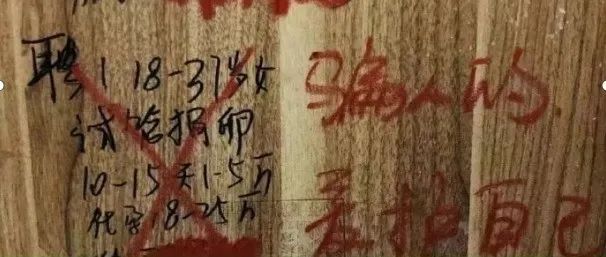 聘！18-37岁女
试管捐卵
10-15天1-5万
代孕18-25万
骗人的
爱护自己